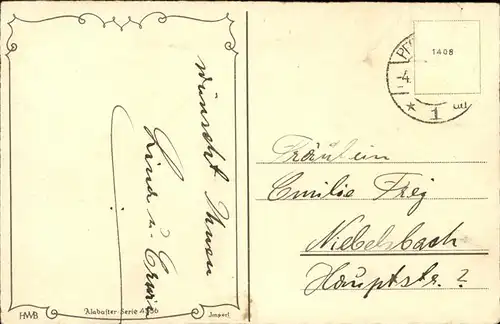 wünscht Ihnen
Lina u. Erwin
HWB
Alabaster-Serie
1408
-4.
* 1
Fräulein
Emilie Frey
Niebelsbach
Hauptstr. ?